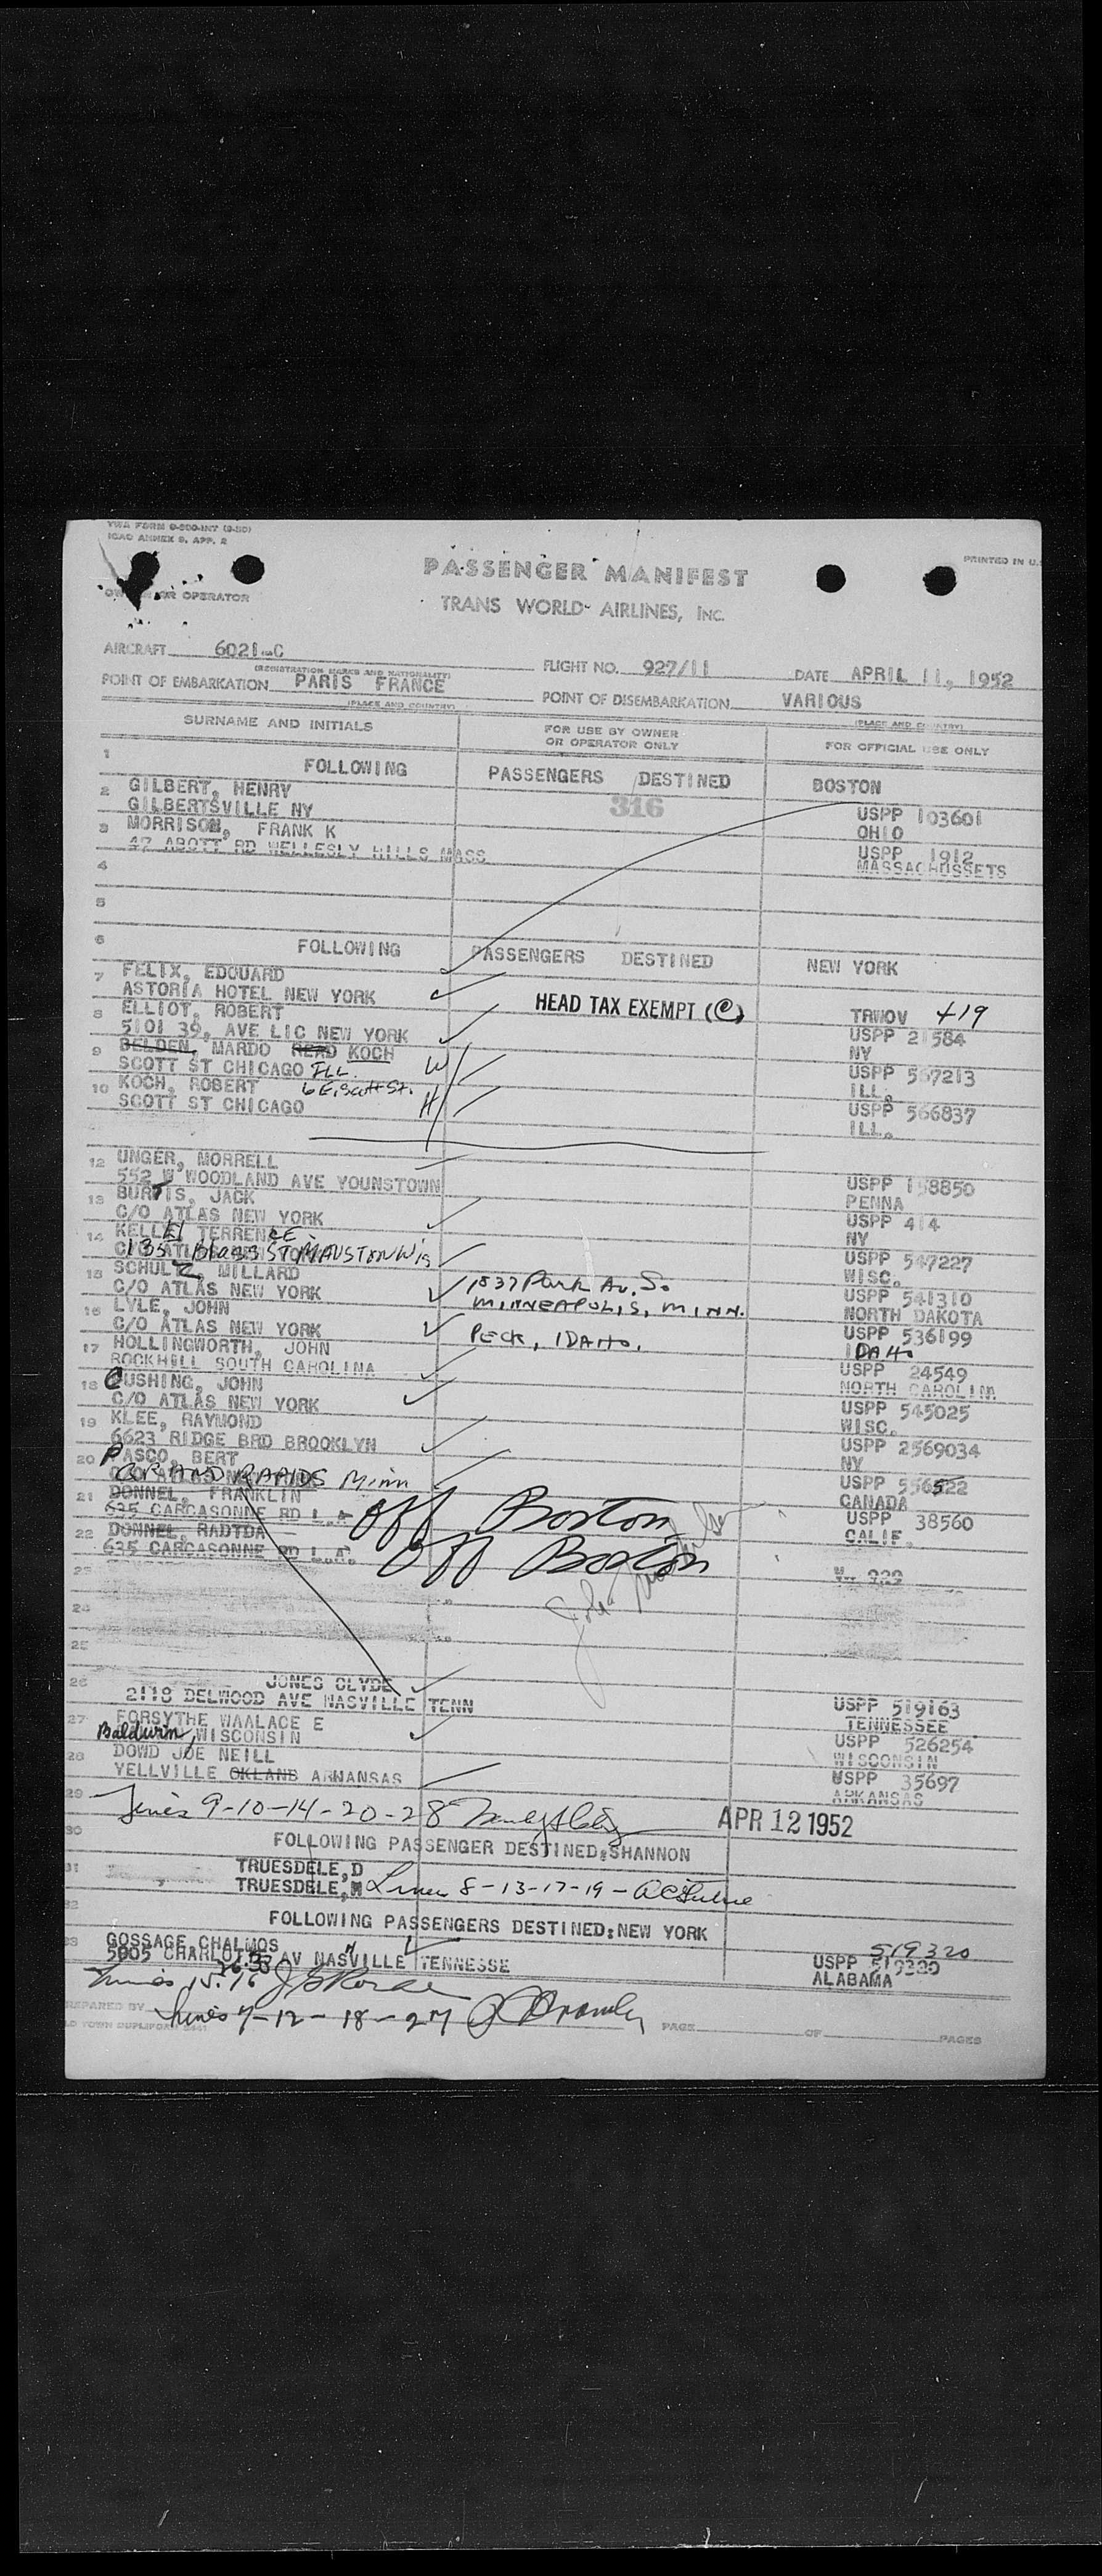 TWA FORM 0-500-INT (9-50)
ICAO ANNEX 9, APP. 2
PRINTED IN U.
PASSENGER MANIFEST
OR OPERATOR
TRANS WORLD AIRLINES, INC.
AIRCRAFT 6021-C FLIGHT NO. 927/11 DATE APRIL 11, 1952
(REGISTRATION MARKS AND NATIONALITY)
POINT OF EMBARKATION PARIS FRANCE POINT OF DISEMBARKATION VARIOUS
(PLACE AND COUNTRY) (PLACE AND COUNTRY)
SURNAME AND INITIALS FOR USE BY OWNER OR OPERATOR ONLY FOR OFFICIAL USE ONLY
1 FOLLOWING PASSENGERS DESTINED BOSTON
2 GILBERT, HENRY 316 USPP 103601
GILBERTSVILLE NY OHIO
3 MORRISON, FRANK K USPP 1912
47 ABOTT RD WELLESLY HILLS MASS MASSACHUSSETS
4
5
6 FOLLOWING PASSENGERS DESTINED NEW YORK
7 FELIX, EDOUARD
ASTORIA HOTEL NEW YORK HEAD TAX EXEMPT (C) TRWOV 419
8 ELLIOT, ROBERT USPP 21584
5101 39, AVE LIC NEW YORK NY
9 BELDEN, MARDO READ KOCH W USPP 567213
SCOTT ST CHICAGO ILL. ILL.
10 KOCH, ROBERT 6 E. Scott St. H USPP 566837
SCOTT ST CHICAGO ILL.
12 UNGER, MORRELL USPP 158850
552 W WOODLAND AVE YOUNSTOWN PENNA
13 BURTIS, JACK USPP 414
C/O ATLAS NEW YORK NY
14 KELLEY TERRENCE USPP 547227
135 ST MAUSTON Wis WISC.
15 SCHULZ, MILLARD 1837 Park Av. So USPP 541310
C/O ATLAS NEW YORK MINNEAPOLIS, MINN. NORTH DAKOTA
16 LYLE, JOHN USPP 536199
C/O ATLAS NEW YORK PECK, IDAHO. IDAHO
17 HOLLINGWORTH, JOHN USPP 24549
ROCKHILL SOUTH CAROLINA NORTH CAROLINA
18 CUSHING, JOHN USPP 545025
C/O ATLAS NEW YORK WISC.
19 KLEE, RAYMOND USPP 2569034
6623 RIDGE BRD BROOKLYN NY
20 PASCO, BERT USPP 556522
GRAND RAPIDS Minn CANADA
21 DONNEL, FRANKLIN off Boston USPP 38560
635 CARCASONNE RD L.A. CALIF.
22 DONNEL, RADTDA off Boston
635 CARCASONNE RD L.A.
23
24
25
26 JONES CLYDE USPP 519163
2118 DELWOOD AVE NASVILLE TENN TENNESSEE
27 FORSYTHE WAALACE E USPP 526254
Baldwin, WISCONSIN WISCONSIN
28 DOWD JOE NEILL USPP 35697
YELLVILLE OKLAND ARKANSAS ARKANSAS
29 Lines 9-10-14-20-28 APR 12 1952
30 FOLLOWING PASSENGER DESTINED:SHANNON
31 TRUESDELE, D
TRUESDELE, M Lines 8-13-17-19 -
32 FOLLOWING PASSENGERS DESTINED:NEW YORK
33 GOSSAGE CHALMOS 519320
5005 CHARLOTTE AV NASHVILLE TENNESSE USPP 519320
26.33 ALABAMA
Lines 15.16
PREPARED BY Lines 7-12-18-27 PAGE OF PAGES